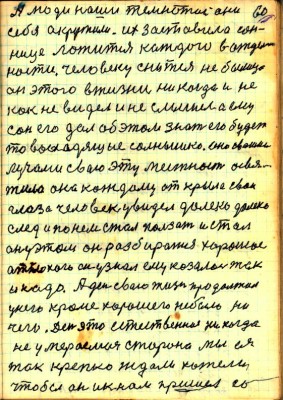 А люди наши темнотой они 60
себя окружили. их заставила сон-
ница ложится каждого в отдель
ности, человеку снится не былица
он этого в жизни никогда и не
как не видел и не слышал а ему
сон его дал об этом знать его будет
то восходящие солнышко. оно своими
лучами сваю эту местность освя-
тило она каждому открыла свои
глаза человек увидел далень далеко
след и по нем стал ползать и стал
он у этом он разбираться хорошое
от плохого он узнал ему козалось так
и надо. А день сваю тишь продолжал
у него кроме хорошего небыло ни
чего. Ден это естественное никогда
не умераемая сторона мы ея
так крепко ждали хотели
чтобы он и к нам пришел со